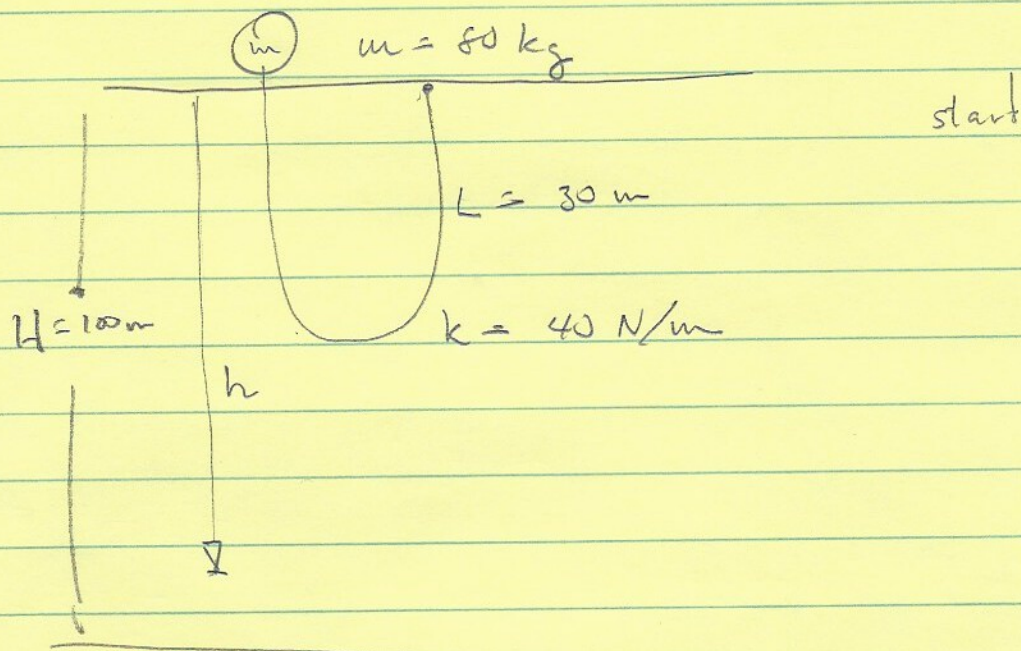 m m = 80 kg
start
L = 30 m
H = 100m
k = 40 N/m
h